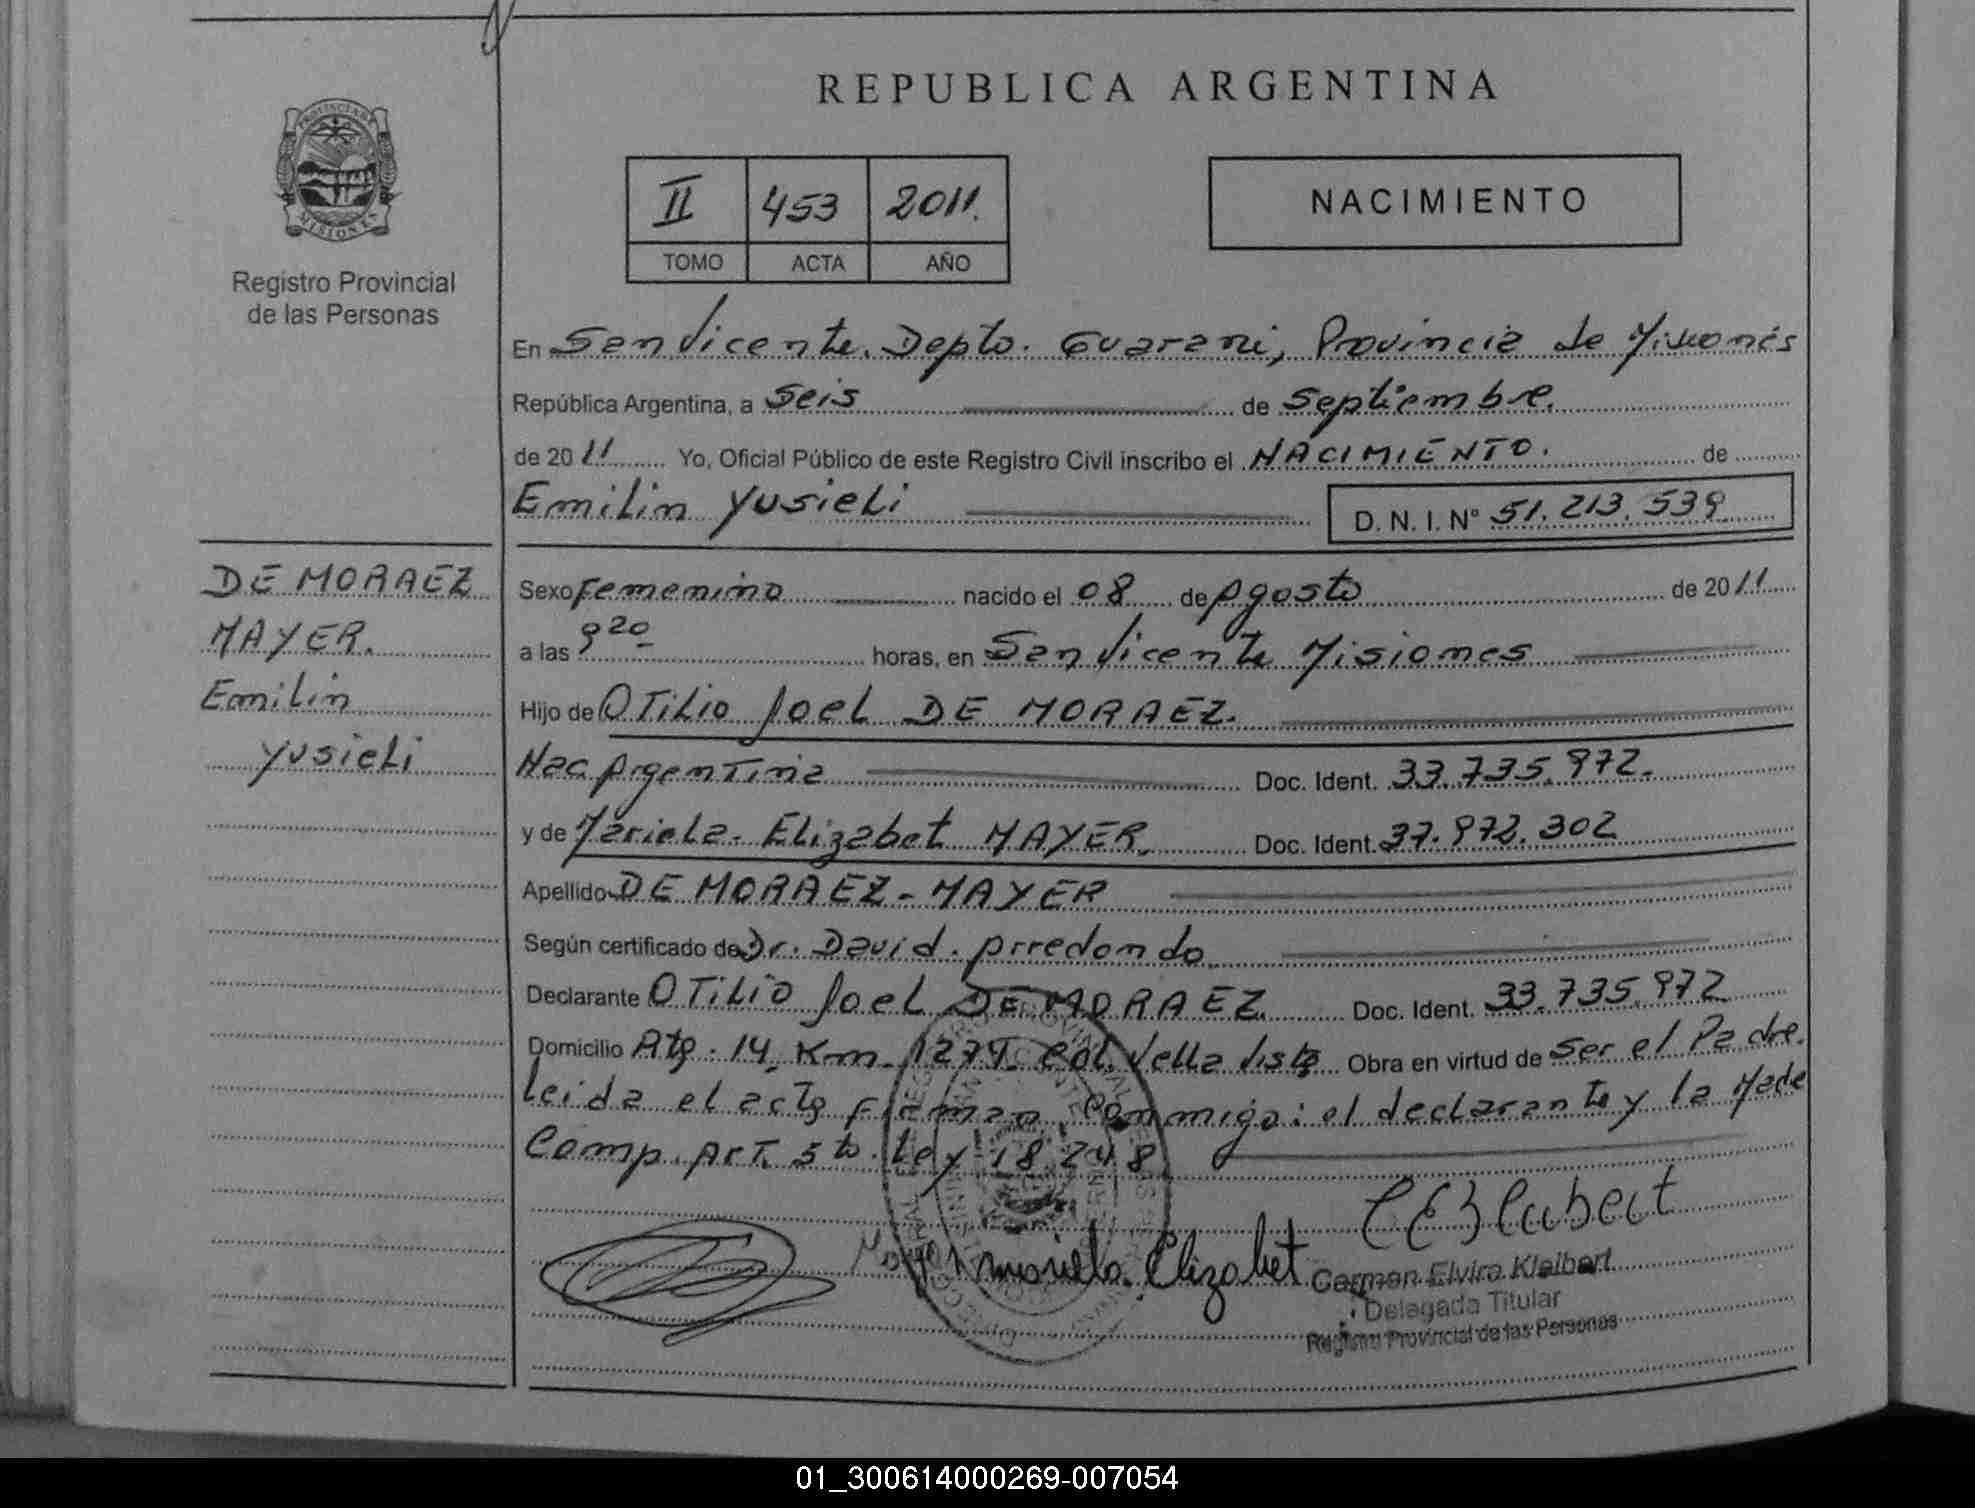 REPUBLICA ARGENTINA
PROVINCIA DE MISIONES
Registro Provincial
de las Personas
II 453 2011.
TOMO ACTA AÑO
NACIMIENTO
En San Vicente. Depto. Guarani, Provincia de Misiones
República Argentina, a Seis de Septiembre.
de 2011 Yo, Oficial Público de este Registro Civil inscribo el NACIMIENTO. de
Emilin Yusieli D. N. I. Nº 51.213.539
DE MORAEZ
MAYER.
Emilin
Yusieli
Sexo Femenino nacido el 08 de Agosto de 2011
a las 9 20 horas, en San Vicente Misiones
Hijo de OTiLio Joel DE MORAEZ.
Nac Argentina Doc. Ident. 33.735.972.
y de Mariela. Elizabet MAYER. Doc. Ident. 37.972.302
Apellido DE MORAEZ - MAYER
Según certificado de Dr. David. Arredondo
Declarante OTiLio Joel DE MORAEZ. Doc. Ident. 33.735.972
Domicilio Km. 1277 Col. Vella Vista Obra en virtud de Ser el Padre.
Leida el acta Firman Conmigo: el declarante y la Made
Comp. ArT. 5to. Ley 18.248
Mayer Mariela Elizabet
Carmen Elvira Kleibert
Delegada Titular
Registro Provincial de las Personas
01_300614000269-007054